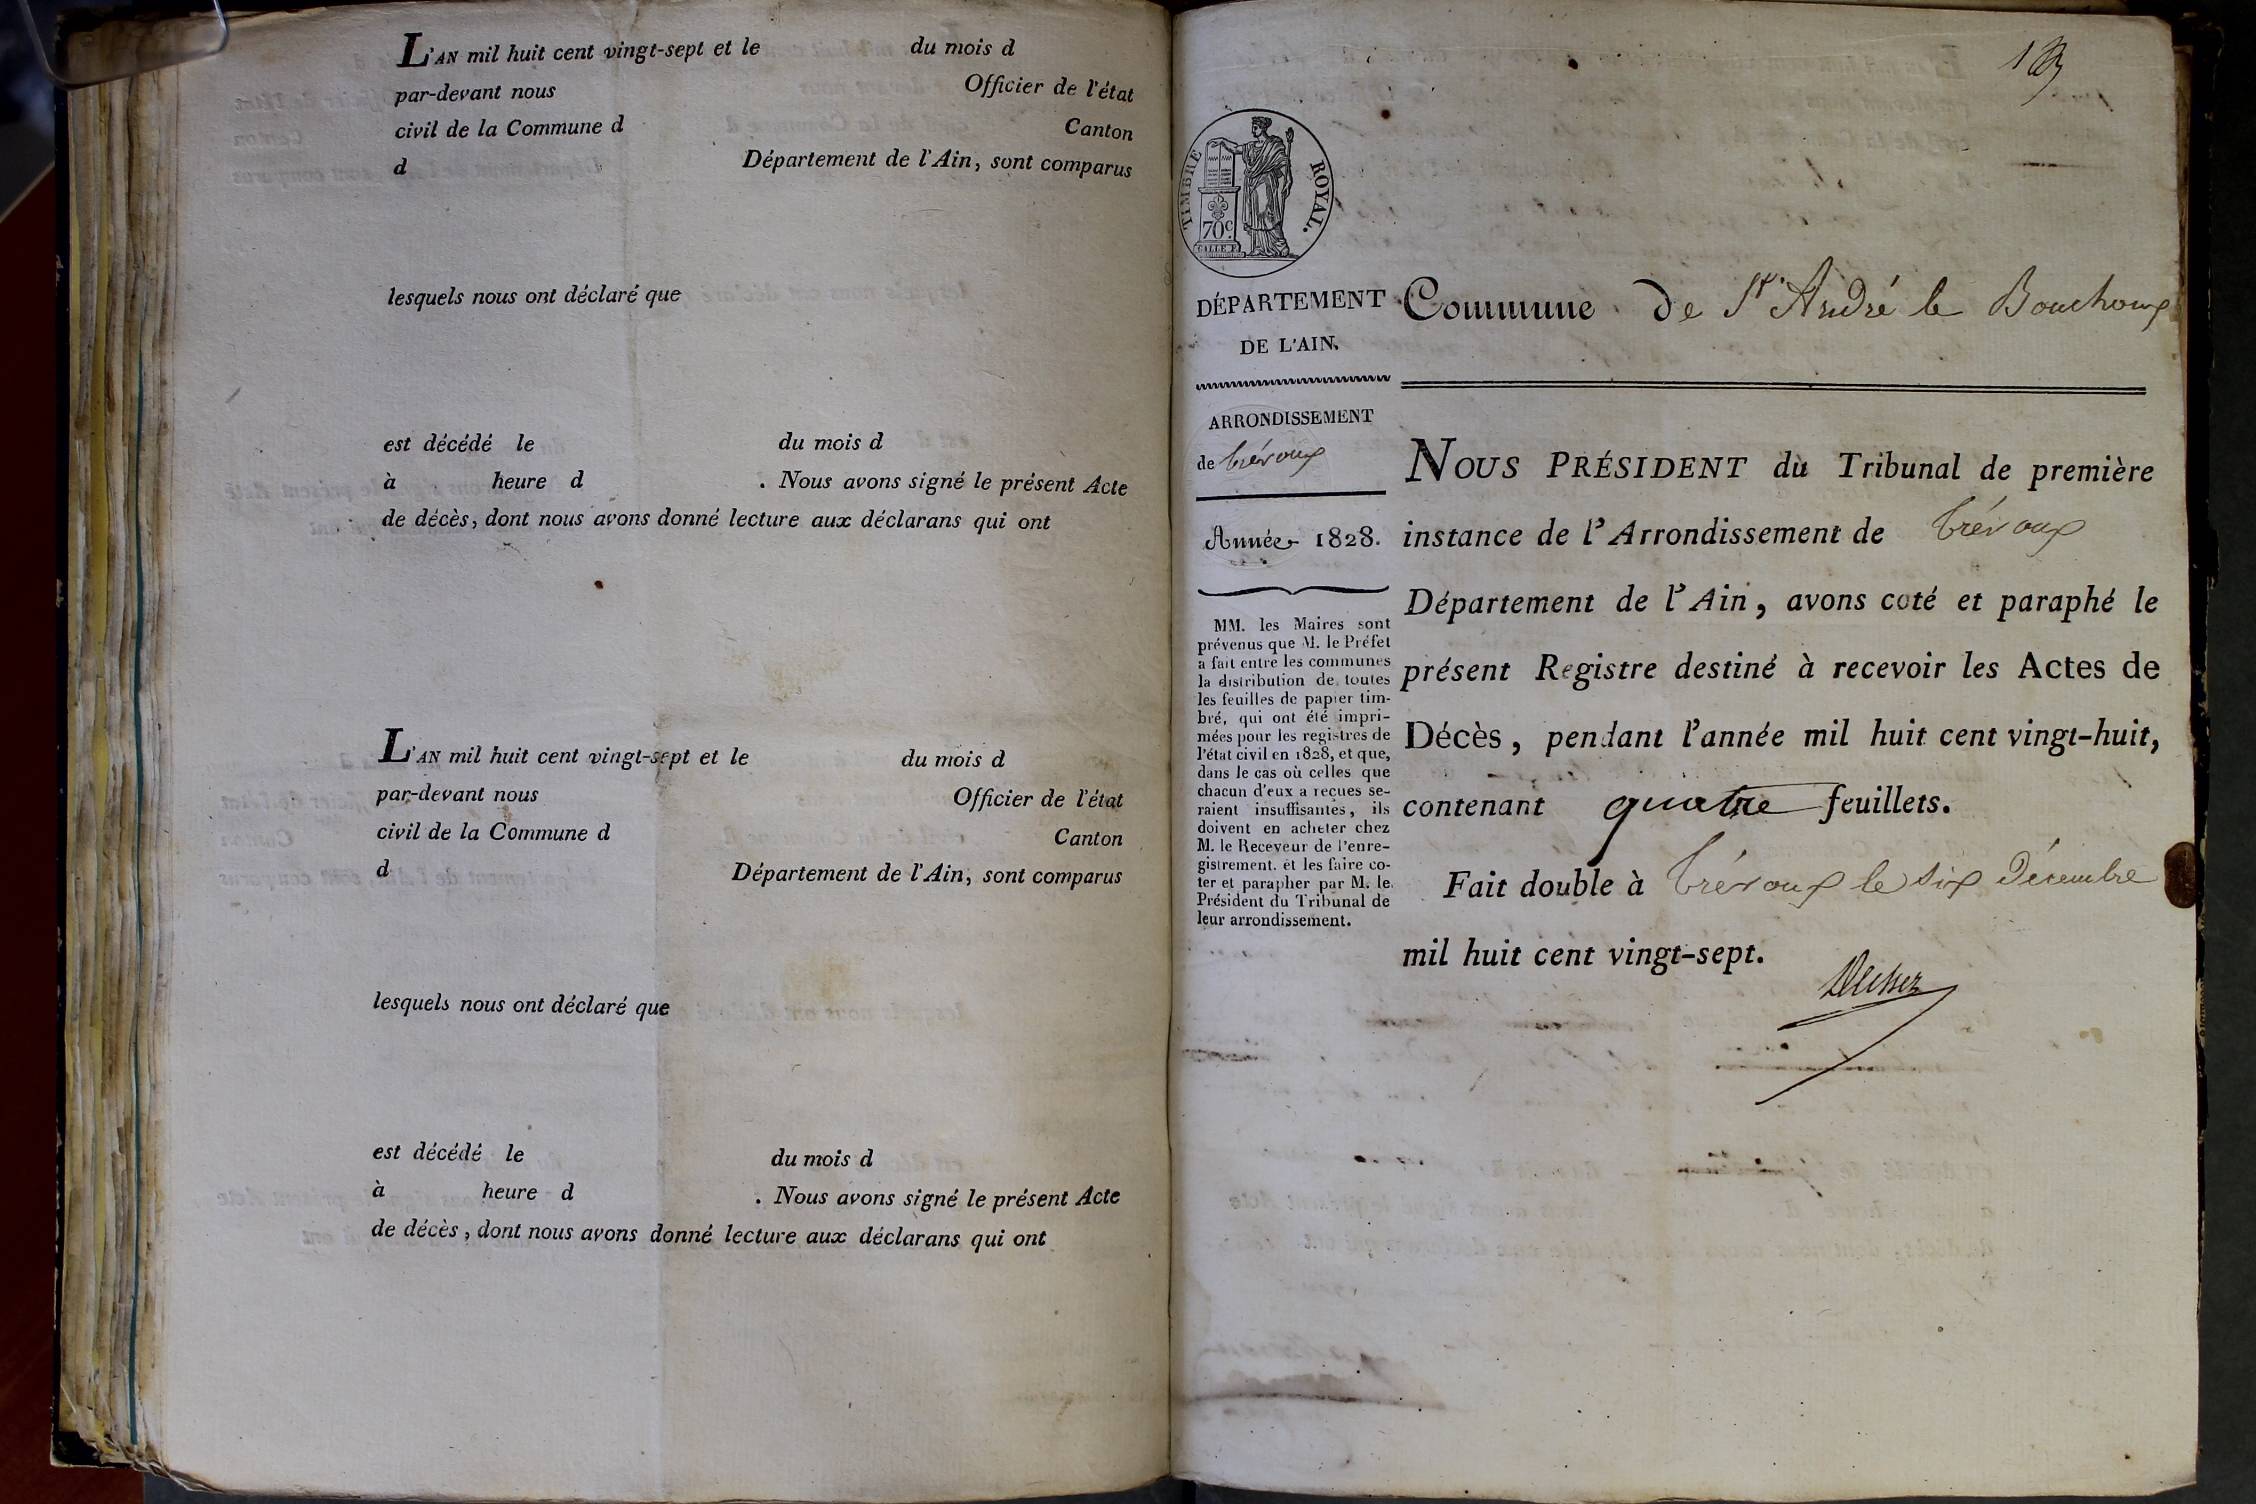 L'AN mil huit cent vingt-sept et le du mois d
par-devant nous Officier de l'état
civil de la Commune d Canton
d Département de l'Ain, sont comparus
lesquels nous ont déclaré que
est décédé le du mois d
à heure d . Nous avons signé le présent Acte
de décès, dont nous avons donné lecture aux déclarans qui ont
L'AN mil huit cent vingt-sept et le du mois d
par-devant nous Officier de l'état
civil de la Commune d Canton
d Département de l'Ain, sont comparus
lesquels nous ont déclaré que
est décédé le du mois d
à heure d . Nous avons signé le présent Acte
de décès, dont nous avons donné lecture aux déclarans qui ont
TIMBRE ROYAL.
70 c.
DÉPARTEMENT
DE L'AIN.
ARRONDISSEMENT
de trévoux
Année 1828.
MM. les Maires sont
prévenus que M. le Préfet
a fait entre les communes
la distribution de toutes
les feuilles de papier tim-
bré, qui ont été impri-
mées pour les registres de
l'état civil en 1828, et que,
dans le cas où celles que
chacun d'eux a reçues se-
raient insuffisantes, ils
doivent en acheter chez
M. le Receveur de l'enre-
gistrement. et les faire co-
ter et parapher par M. le
Président du Tribunal de
leur arrondissement.
Commune de St. André le Bouchoux
NOUS PRÉSIDENT du Tribunal de première
instance de l'Arrondissement de trévoux
Département de l'Ain, avons coté et paraphé le
présent Registre destiné à recevoir les Actes de
Décès, pendant l'année mil huit cent vingt-huit,
contenant quatre feuillets.
Fait double à trévoux le six Décembre
mil huit cent vingt-sept.